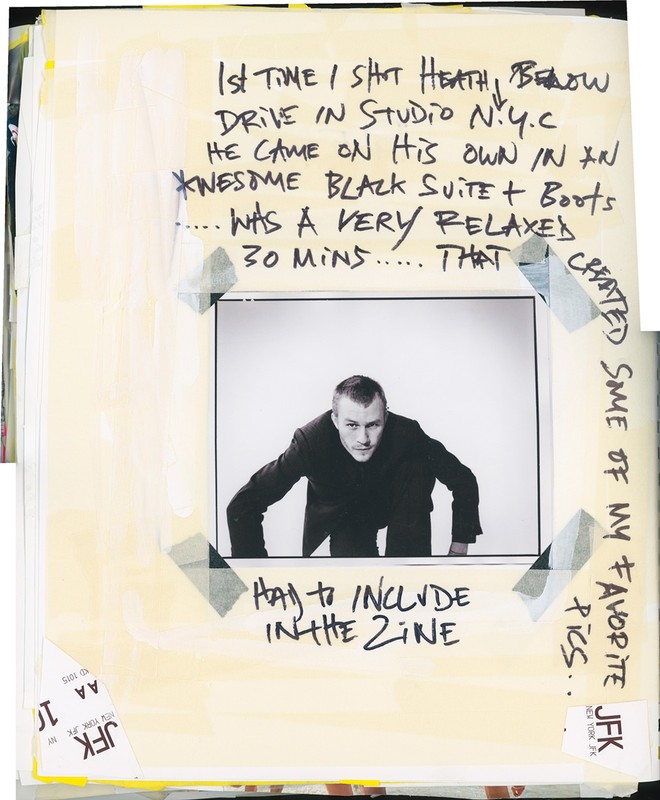 1st TIME I SHOT HEATH, BELOW
DRIVE IN STUDIO N.Y.C
HE CAME ON HIS OWN IN AN
AWESOME BLACK SUITE + Boots
..... WAS A VERY RELAXED
30 MINS..... THAT
CREATED SOME OF MY FAVORITE
PICS..
HAD to INCLUDE
IN THE ZINE
KD 1015
AA
10
NEW YORK JFK
NY
JFK
JFK
NEW YORK JFK